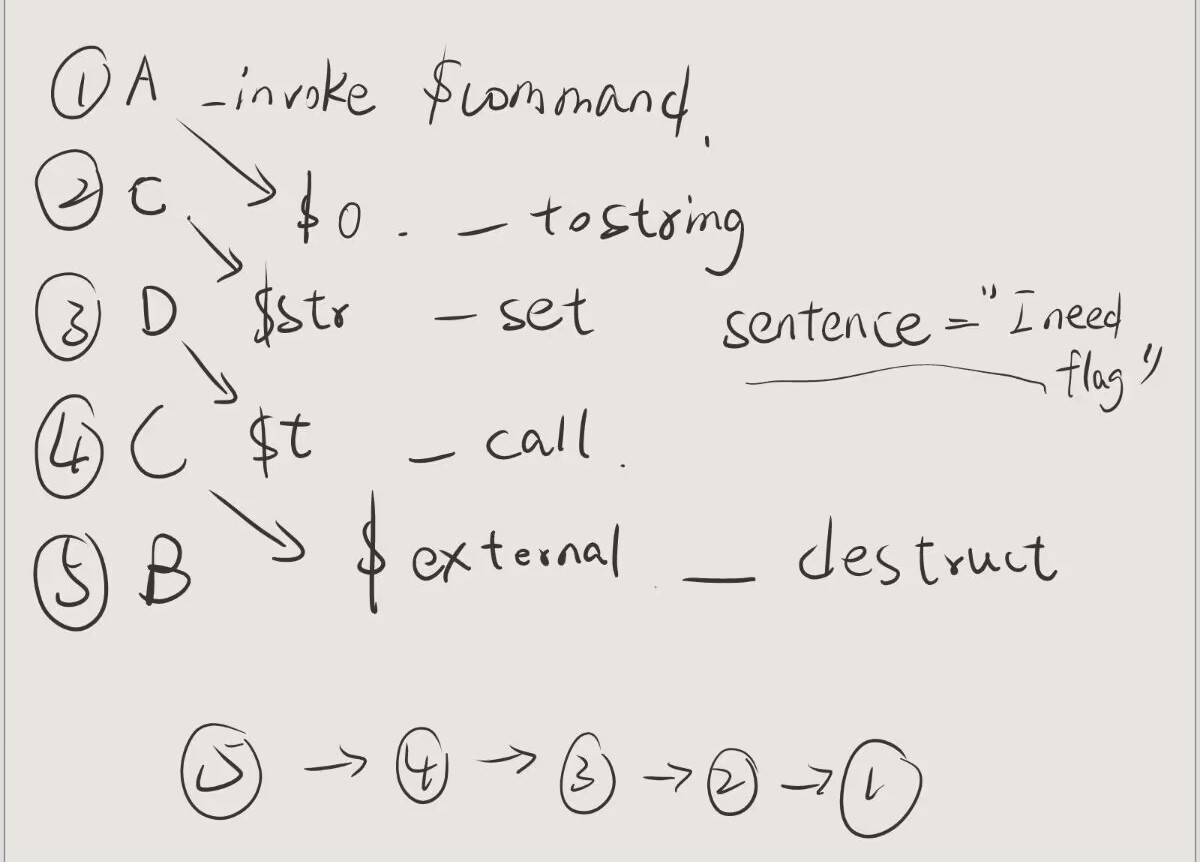 ① A _invoke $command.
② C. $o. _ tostring
③ D $str _ set
sentence = "I need flag"
④ C $t _ call.
⑤ B $external __ destruct
⑤ → ④ → ③ → ② → ①